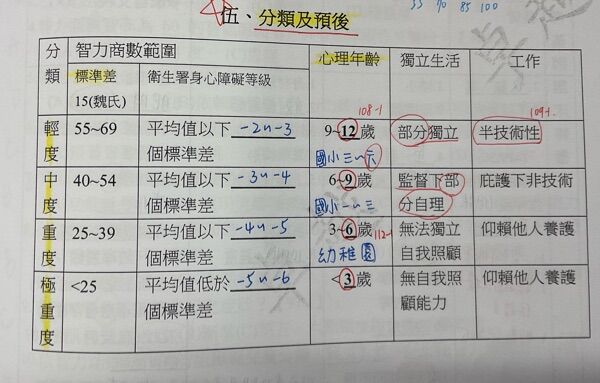 55 70 85 100
伍、分類及預後
分類 智力商數範圍 心理年齡 獨立生活 工作
標準差 衛生署身心障礙等級
15(魏氏)
108-1 109-1
輕度 55~69 平均值以下 -2~-3 9~12歲 部分獨立 半技術性
個標準差 國小三~六
中度 40~54 平均值以下 -3~-4 6~9歲 監督下部 庇護下非技術
個標準差 國小一~三 分自理
重度 25~39 平均值以下 -4~-5 3~6歲 無法獨立 仰賴他人養護
112-1
個標準差 幼稚園 自我照顧
極重度 <25 平均值低於 -5~-6 <3歲 無自我照 仰賴他人養護
個標準差 顧能力